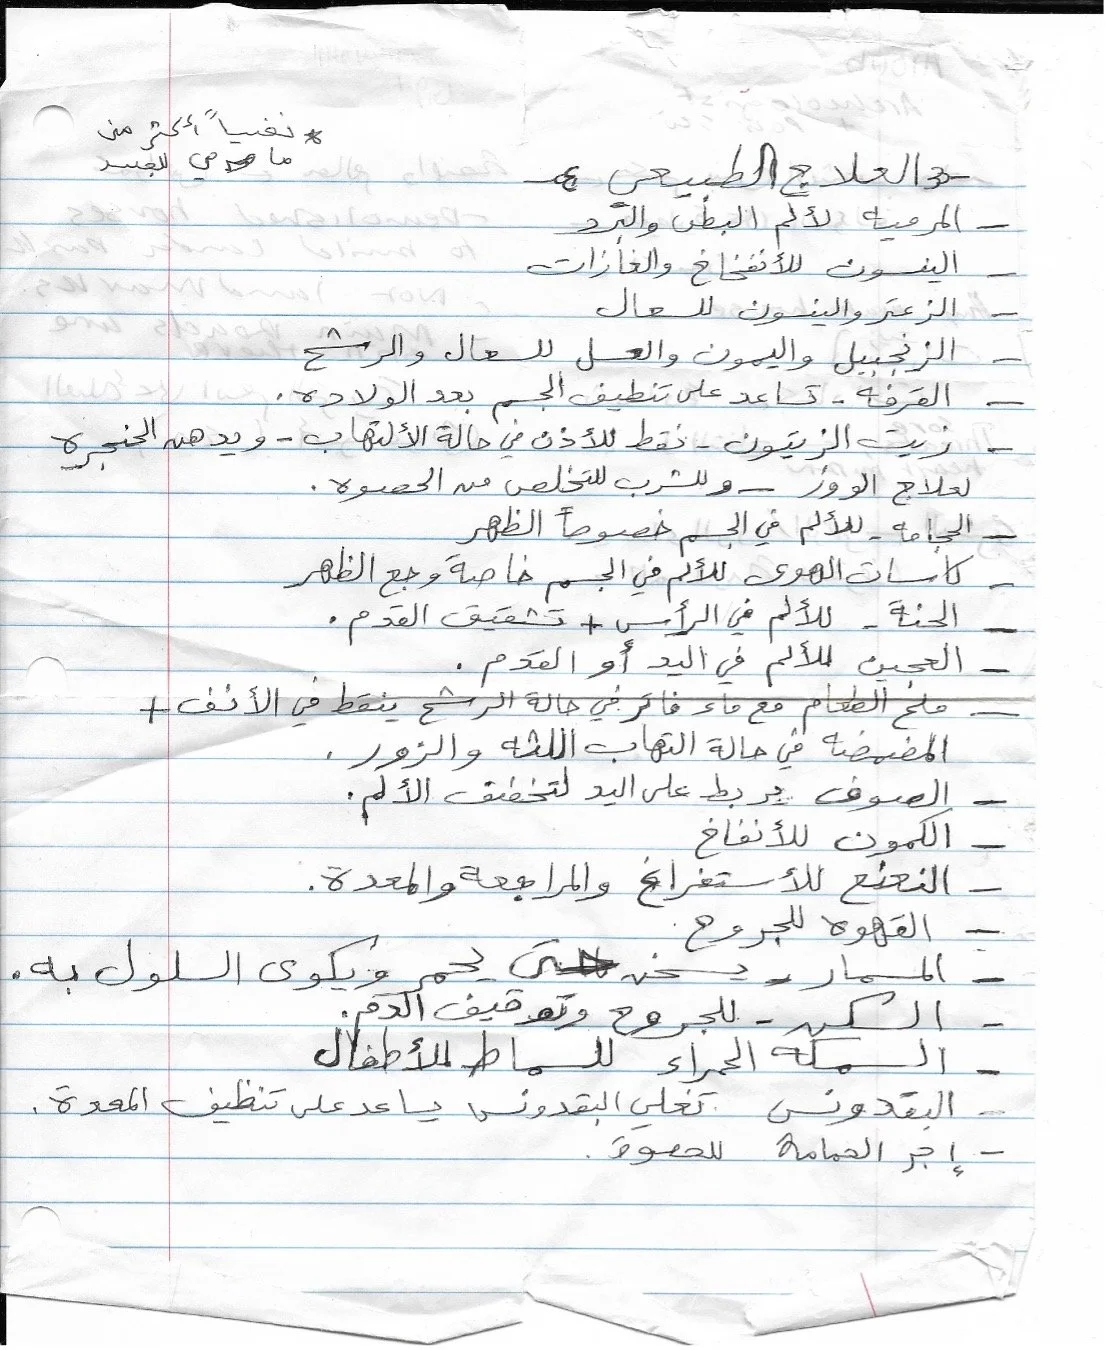 * نفسياً أكثر من
ما هي للجسد
العلاج الطبيعي
- المرمية لألم البطن والبرد
- الينسون للأنفخاخ والغازات
- الزعتر والينسون للسعال
- الزنجبيل واليمون والعسل للسعال والرشح
- القرفة - تساعد على تنظيف الجسم بعد الولادة.
- زيت الزيتون - نقط للأذن في حالة الألتهاب - ويدهن الحنجرة
لعلاج الووز - وللشرب للتخلص من الحصوة.
- الحجامة - للألم في الجسم خصوصاً الظهر
- كاسات الهوى للألم في الجسم خاصة وجع الظهر
- الحنة - للألم في الرأس + تشقيق القدم.
- العجين للألم في اليد أو القدم.
- ملح الطعام مع ماء فاتر في حالة الرشح ينقط في الأنف +
المضمضة في حالة التهاب اللثة والزور.
- الصوف يربط على اليد لتخفيف الألم.
- الكمون للأنفاخ
- النعنع للأستفراغ والمراجعة والمعدة.
- القهوة للجروح
- المسمار - يسخن حتى يحمر ويكوى السلول به.
- السكن - للجروح وتوقيف الدم.
- السمكة الحمراء للسماط للأطفال
- البقدونس تغلي البقدونس يساعد على تنظيف المعدة.
- إجر الحمامة للحصوة.